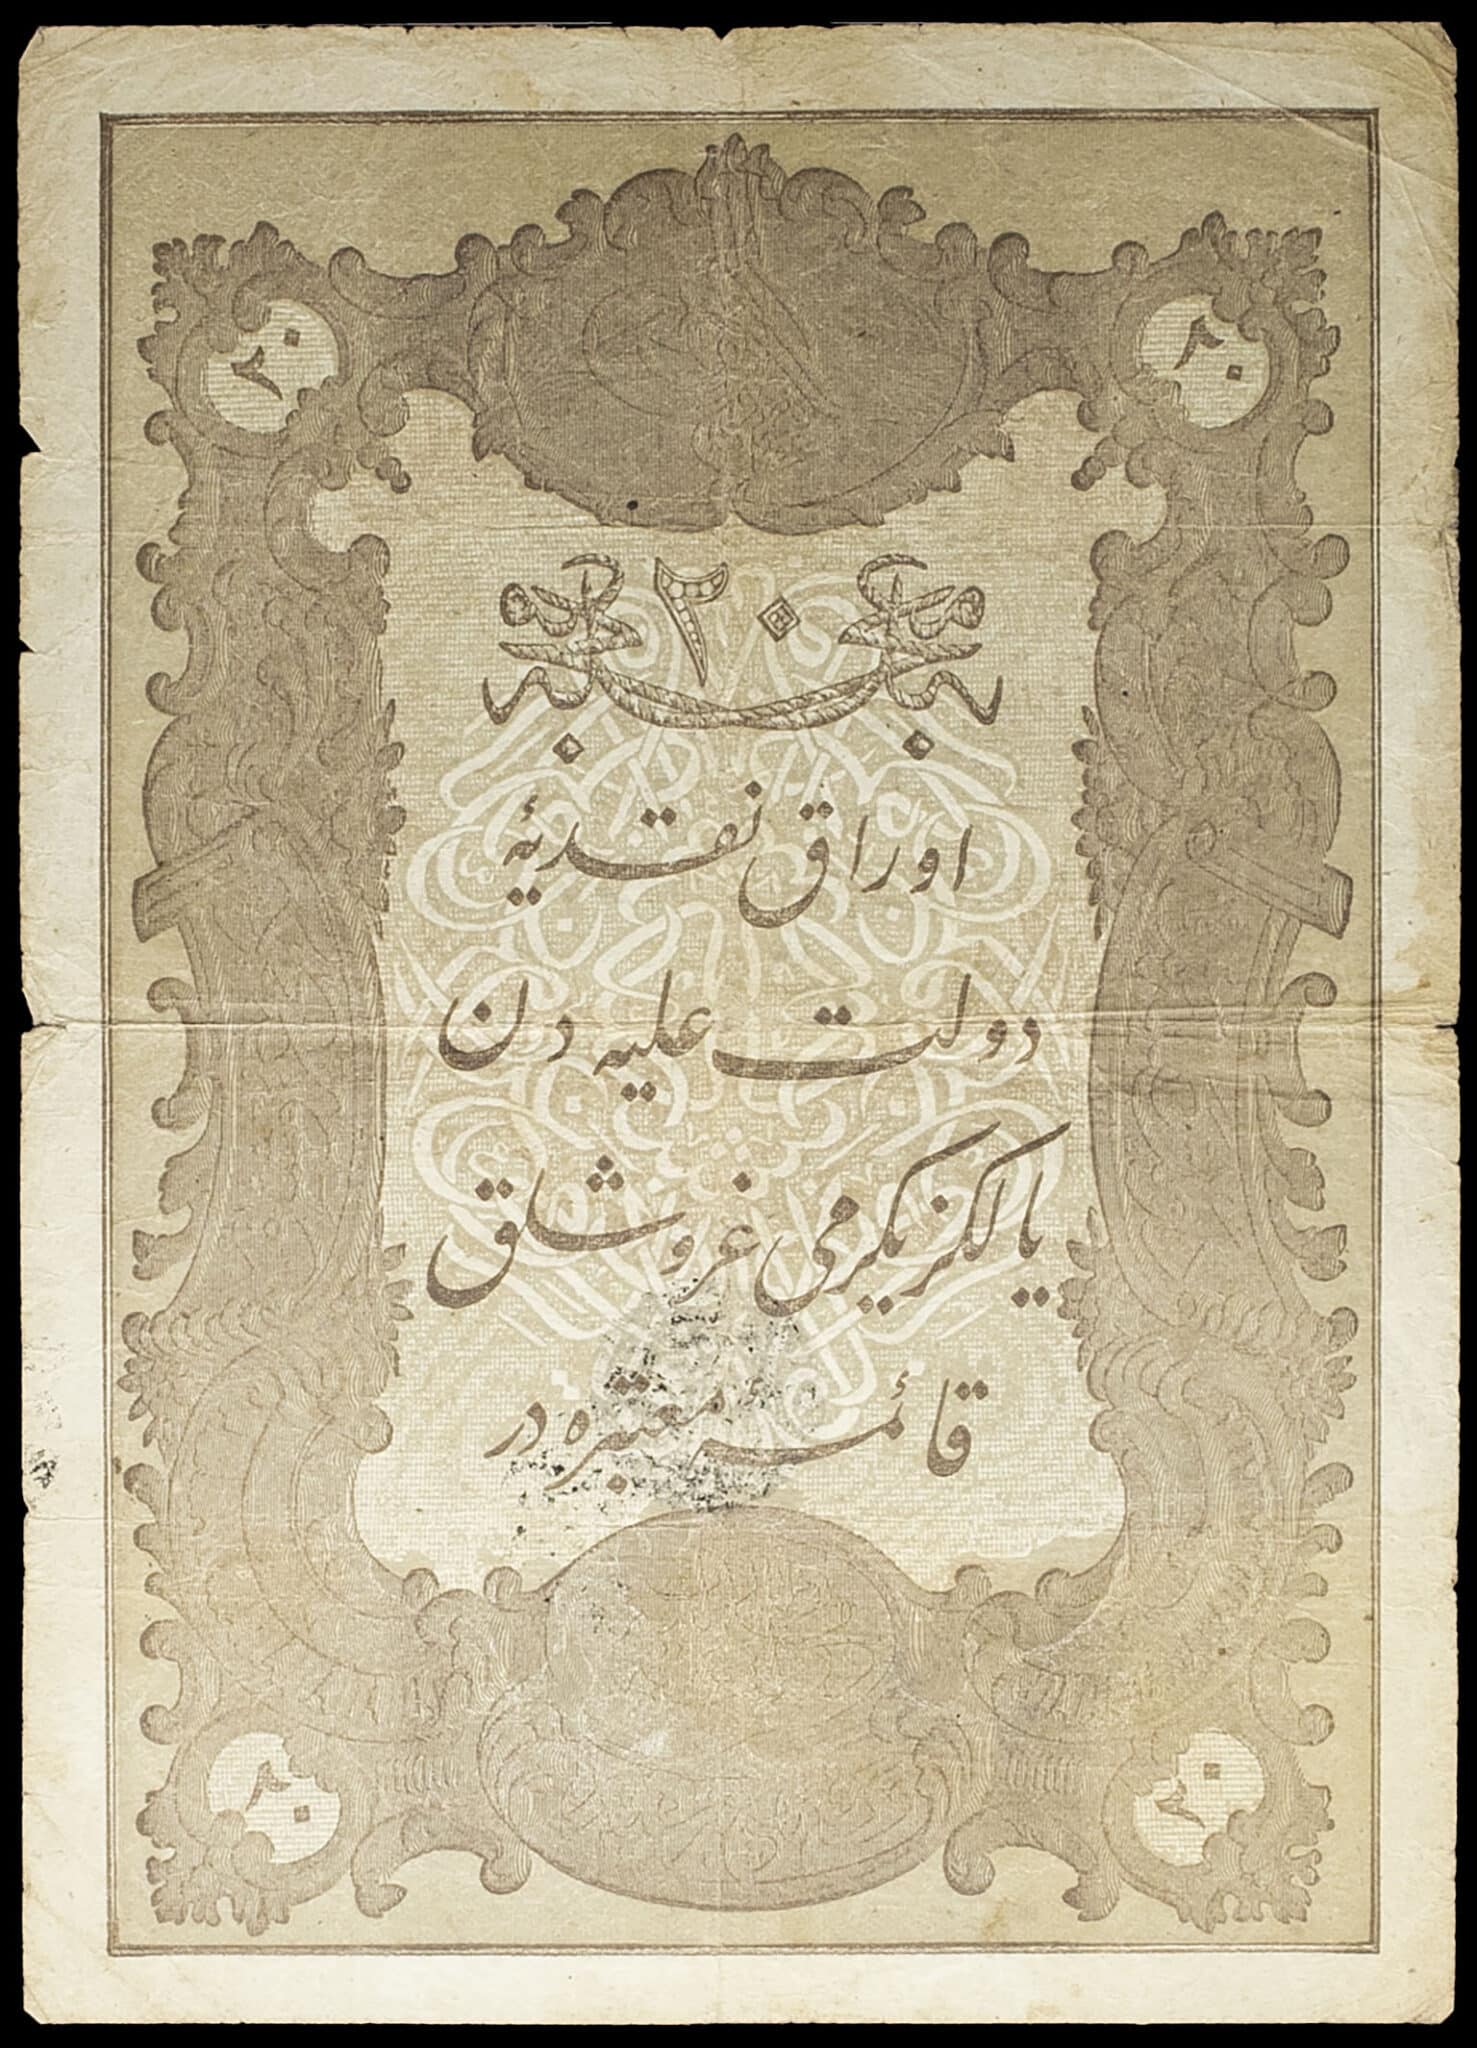 ٢٠
٢٠
٢٠
اوراق نقديهٔ
دولت عليه دن
يالكز يكرمی غروشلق
قائمهٔ معتبره در
٢٠
٢٠